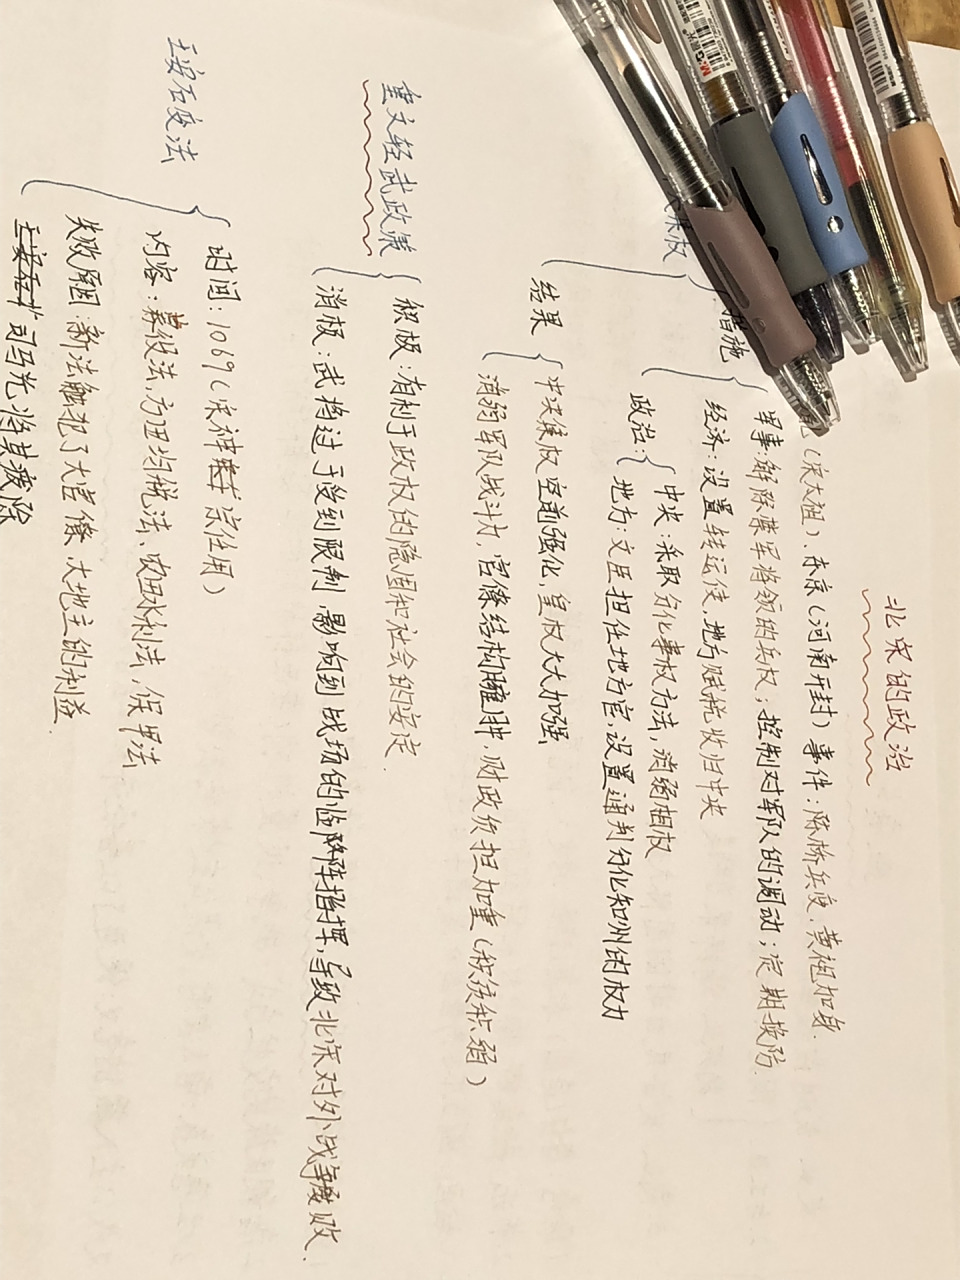 北宋的政治
(宋太祖)、东京(河南开封)事件:陈桥兵变,黄袍加身.
措施
军事:解除禁军将领的兵权;控制对军队的调动;定期换防.
经济:设置转运使,地方赋税收归中央
政治:
中央:采取分化事权方法,削弱相权
地方:文臣担任地方官,设置通判分化知州的权力
结果
中央集权空前强化,皇权大大加强
消弱军队战斗力,官僚结构臃肿,财政负担加重(积贫积弱)
重文轻武政策
积极:有利于政权的隐固和社会的安定.
消极:武将过于受到限制,影响到战场的临阵指挥,导致北宋对外战争屡败.
王安石变法
时间:1069(宋神宗任用)
内容:募役法,方田均税法、农田水利法,保甲法.
失败原因:新法触犯了大官僚、大地主的利益.
司马光将其废除